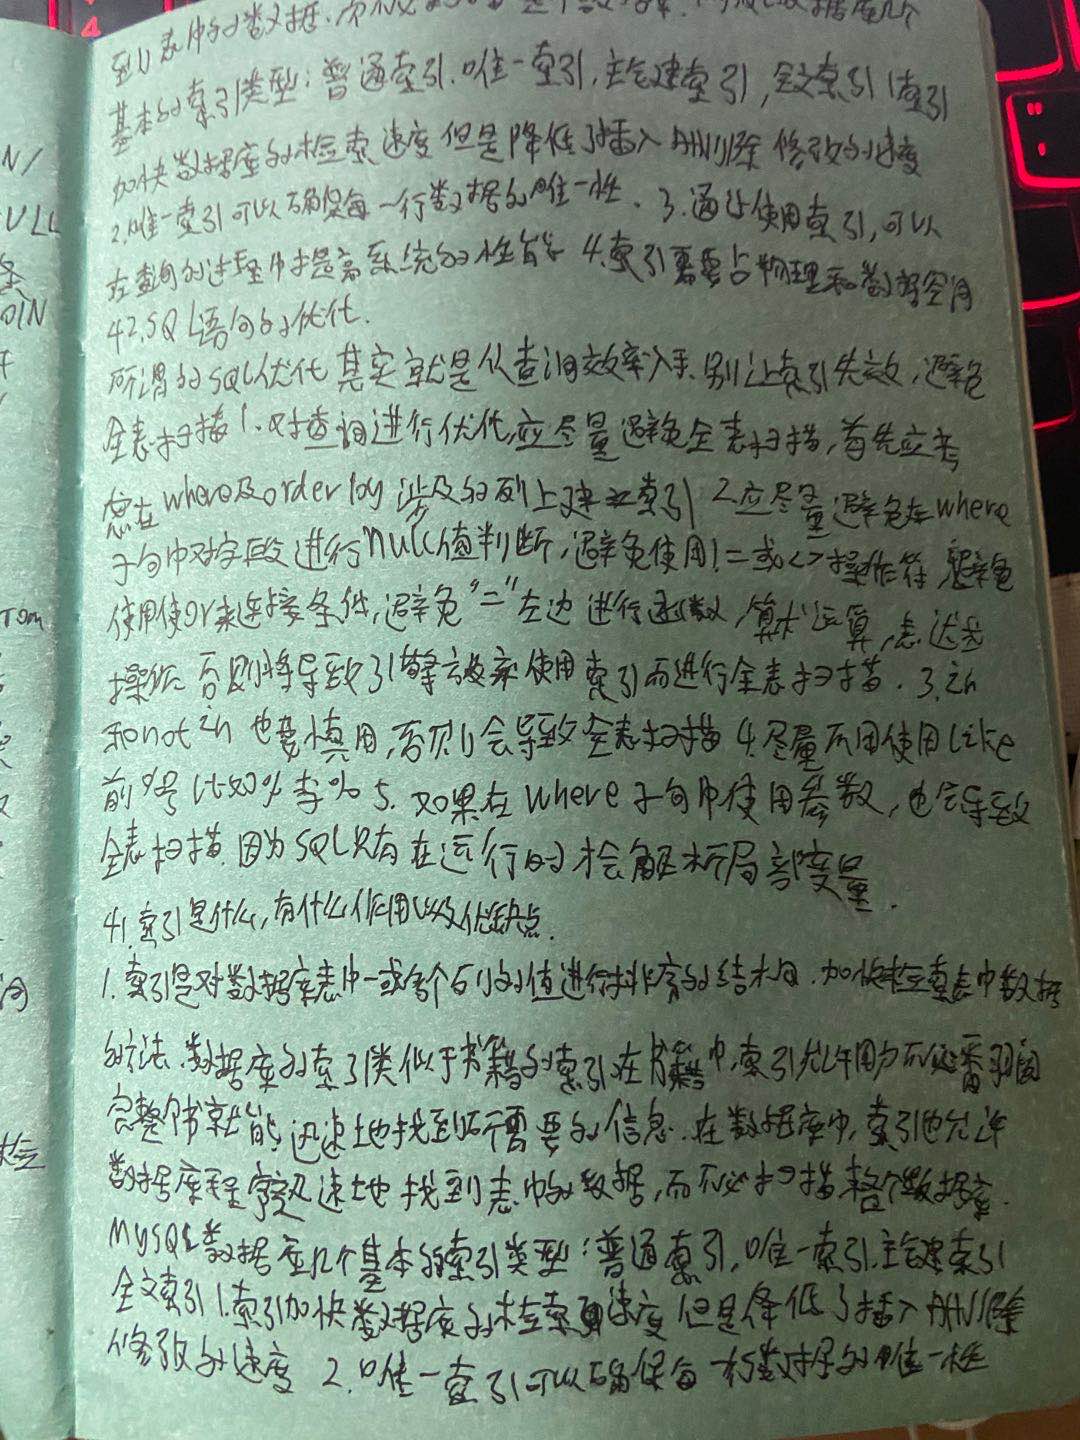 到表中的数据,而不必扫描整个数据库.
基本的索引类型:普通索引.唯一索引,主键索引,全文索引 1索引
加快数据库的检索速度 但是降低了插入 删除 修改的速度
2.唯一索引可以确保每一行数据的唯一性. 3.通过使用索引,可以
在查询的过程中提高系统的性能 4.索引需要占物理和数据空间
42.SQL语句的优化.
所谓的SQL优化 其实就是从查询效率入手.别让索引失效,避免
全表扫描 1.对查询进行优化,应尽量避免全表扫描,首先应考
虑在where及order by 涉及的列上建立索引 2.应尽量避免在where
子句中对字段进行null值判断,避免使用!=或<>操作符,避免
使用使or来连接条件,避免"="左边进行函数,算术运算,表达式
操作 否则将导致引擎放弃使用索引而进行全表扫描. 3.in
和not in 也要慎用,否则会导致全表扫描 4.尽量不用使用like
前%号 比如%李% 5.如果在where子句中使用参数,也会导致
全表扫描.因为SQL只有在运行时才会解析局部变量.
41.索引是什么,有什么作用以及优缺点.
1.索引是对数据库表中一或多个列的值进行排序的结构.加快检查表中数据
的方法.数据库的索引类似于书籍的索引在书籍中,索引允许用户不必番羽阅
完整个书就能迅速地找到所需要的信息.在数据库中,索引也允许
数据库程序迅速地找到表中的数据,而不必扫描整个数据库.
MySQL数据库几个基本的索引类型:普通索引,唯一索引.主键索引
全文索引 1.索引加快数据库的检索速度 但是降低了插入 删除
修改的速度 2.唯一索引可以确保每一行数据的唯一性